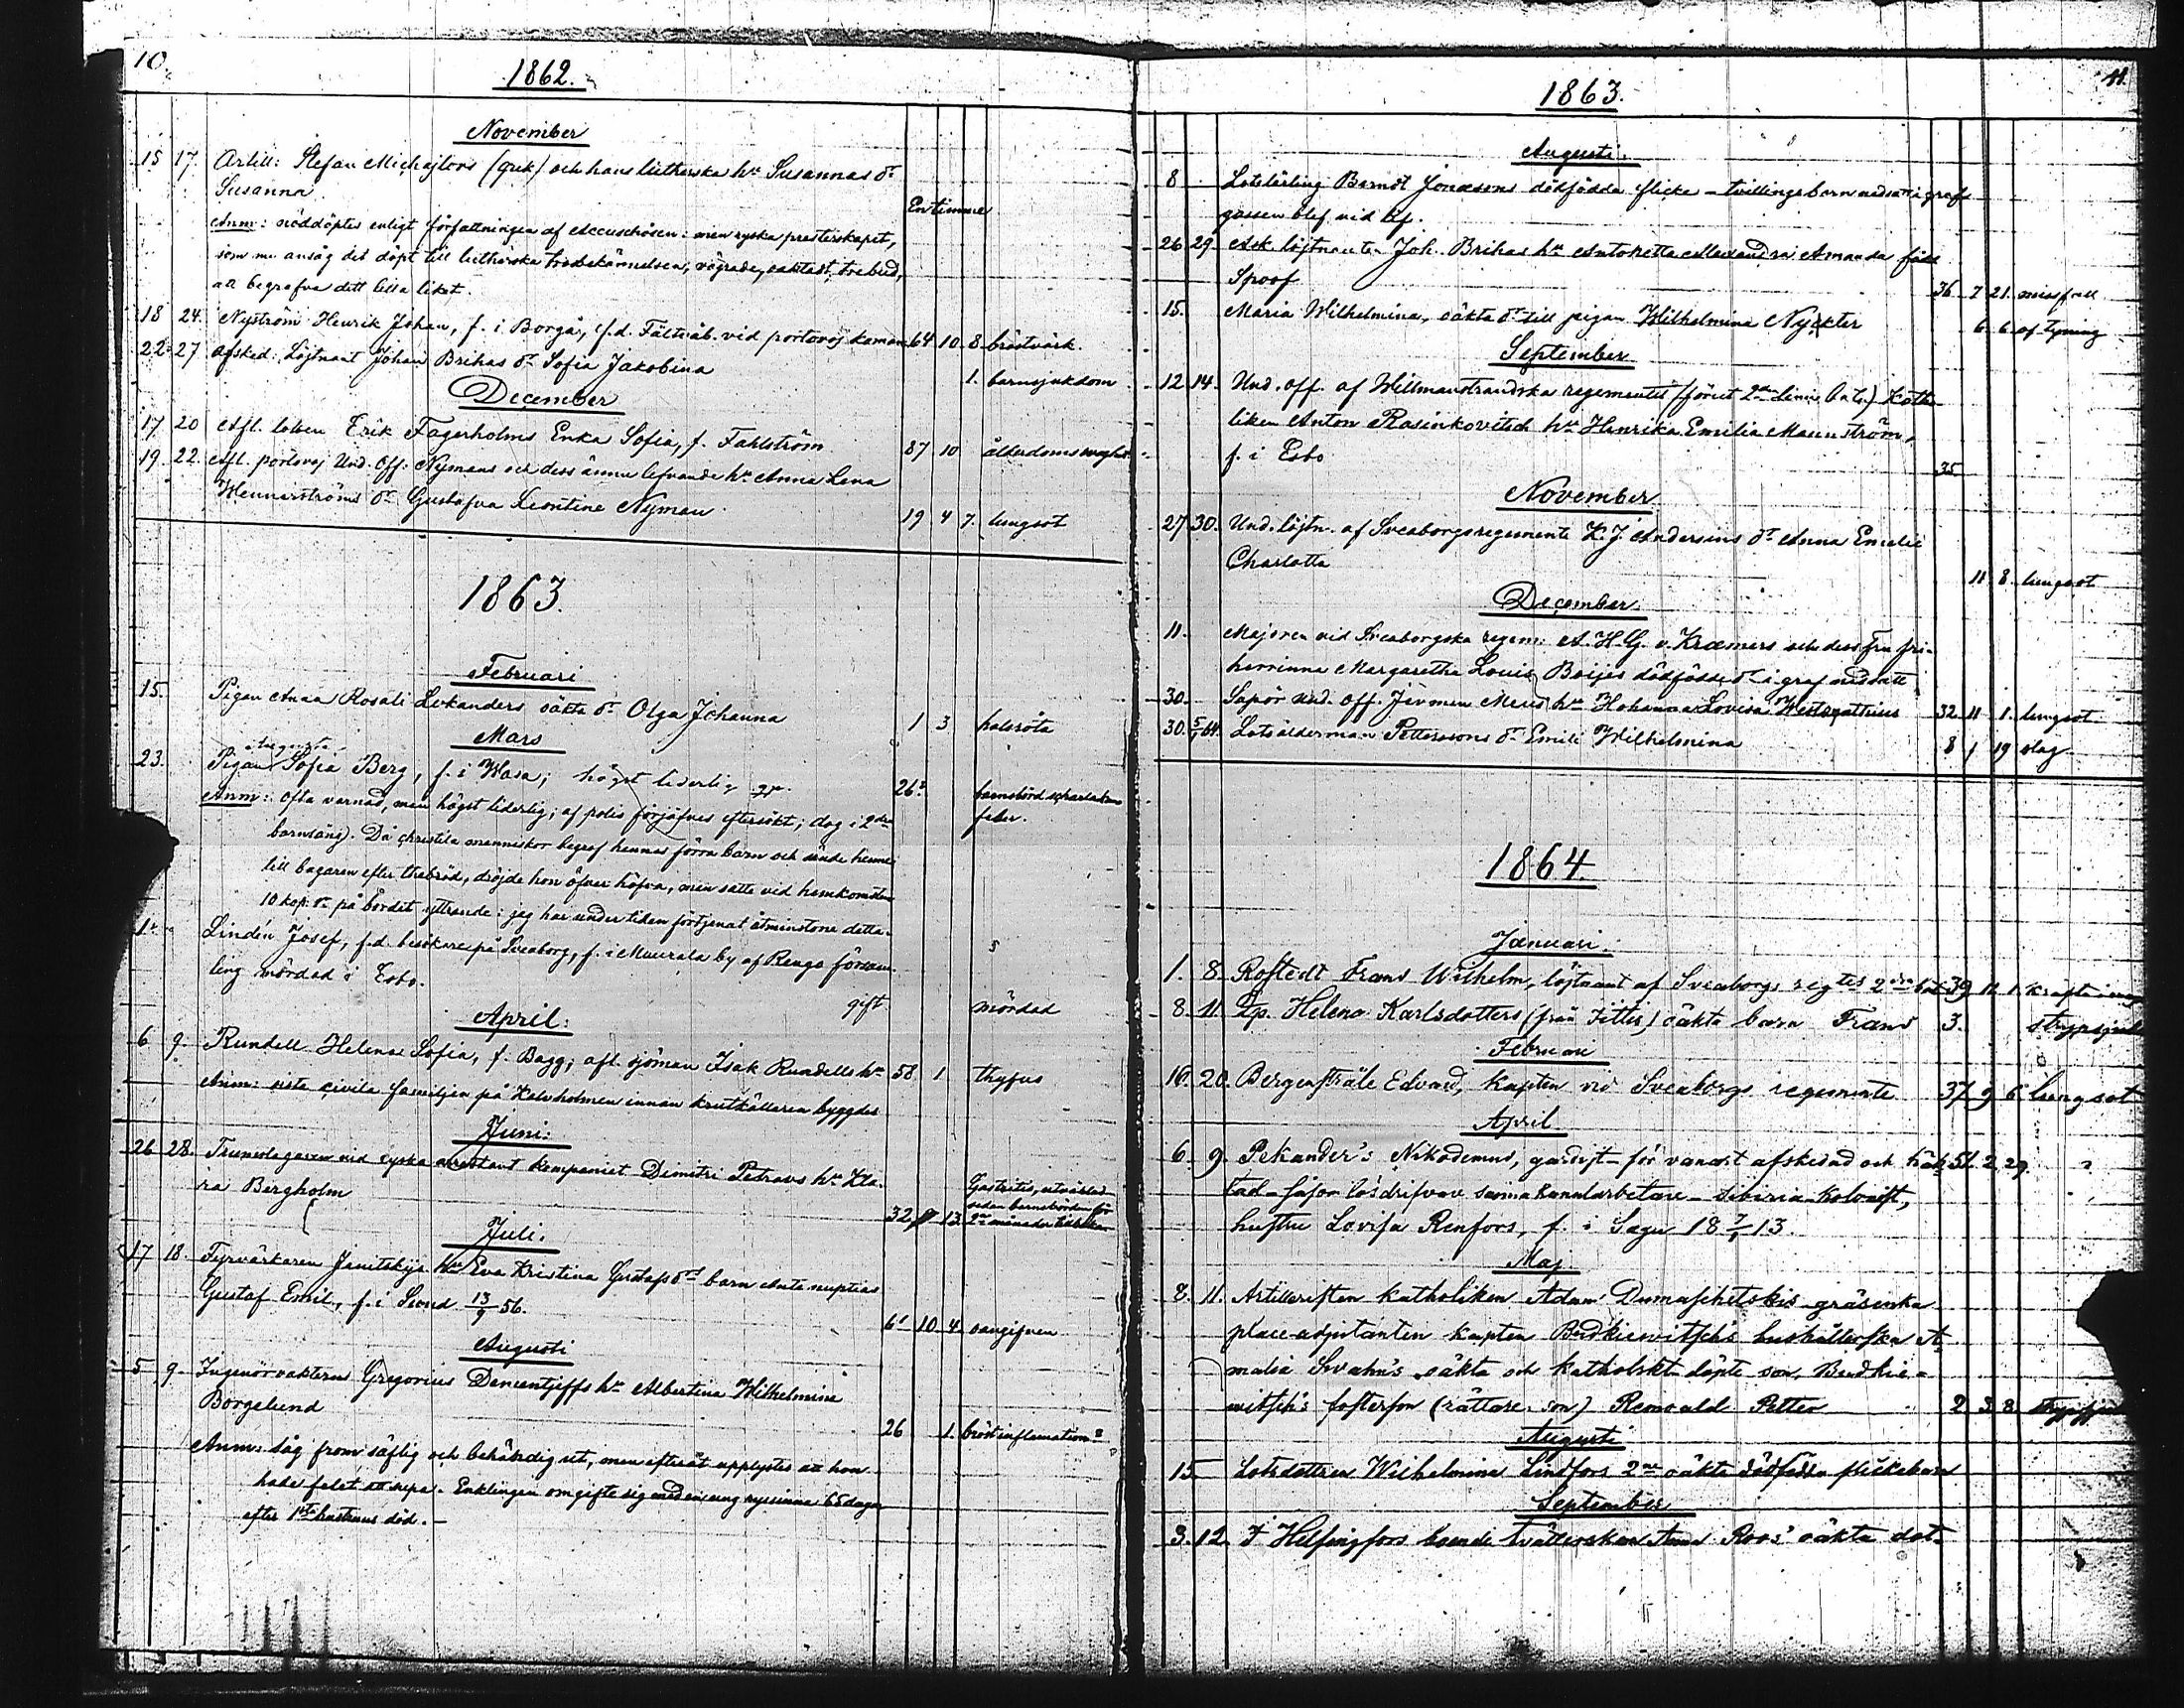 10.
1862.
November
15 17. Artill: Stefan Michajlovs (grek) och hans lutherska hu Susannas dr
Susanna. En timme
Anm: nöddöptes enligt författningen af Accuschösen: men ryska presterskapet,
som nu ansåg det döpt till lutherska trosbekännelsen, vägrade, oaktadt trebud,
att begrafva dett lilla liket.
18 24. Nyström Henrik Johan, f. i Borgå, f.d. Fältväb. vid portovoj kaman 64 10 8 bröstvärk.
22 27 afsked. Löjtnant Johan Brihas dr Sofia Jakobina 1. barnsjukdom
December
17 20 Afl. lotsen Erik Fagerholms Enka Sofia, f. Fahlström 87 10 ålderdomssvaghet
19. 22. Afl. portovoj Und. Off. Nymans och dess ännu lefvande hu Anna Lena
Wennerströms dr Gustafva Leontine Nyman 19 4 7. lungsot
1863.
Februari
15. Pigan Anna Rosali Lokanders oäkta dr Olga Johanna 1 3 halsröta
Mars
23. Pigan Sofia Berg, f. i Wasa; högst liderlig 26 barnsbörd scharlakans
feber.
Anm: ofta varnad, men högst liderlig; af polis förjäfves eftersökt; dog i 2dra
barnsäng). Då christela menniskor begrof hennes förra barn och sände henne
till bagaren efter thebröd, dröjde hon öfver höfva, men satte vid hemkomsten
10 kop. sr på bordet yttrande: jag har under tiden förtjenat åtminstone detta.
1. Lindén Josef, f.d. besökare på Sveaborg, f. i Muurala by af Rengo försam-
ling mördad i Esbo. gift mördad
April:
6 9. Rundell Helena Sofia, f. Bagg; afl. sjöman Isak Rundells hu 58. 1 thyfus
Anm: sista civila familjen på Kalvholmen innan krutkällaren byggdes
Juni:
26 28. Trumslagaren vid ryska arrestant kompaniet Dimitri Petrovs hu Kla-
ra Bergholm 32 13. Gastrites, utvärklad
sedan barnsborden för
2ne månader tillbaka
Juli.
17 18. Fyrvärkaren Janitskijs hu Eva Kristina Gustafsdrs barn Ante nuptias
Gustaf Emil, f. i Sund 13/9 56. 6 10 4. oangifven
Augusti
5 9. Ingenörvaktern Gregorius Demcentjeffs hu Albertina Wilhelmina
Borgelund 26 1. bröstinflamation
Anm: såg from saflig och behändig ut, men efteråt upplystes att hon
hade felet att supa. Enklingen omgifte sig med en ung ryssinna 65 dagar
efter 1sta hustruns död.—
11.
1863.
Augusti.
8 Lotslärling Berndt Jonassons dödfödda flicka – tvillingsbarn nedsatt i graf
gossen blef vid lif.
26 29. Ask. löjtnanten Joh. Brihas hu Antonetta Alexandra Amanda född
Spoof 36 7 21. missfall
15. Maria Wilhelmina, oäkta dr till pigan Wilhelmina Nyckter 6. 6 af tyning
September
12 14. Und. off. af Willmanstrandska regementet (föret 2dra Linie bat.) Katho-
liken Anton Rasinkovitsch hu Henrika Emilia Mannström,
f. i Esbo 35
November
27 30. Und. löjtn. af Sveaborgsregemente K. J. Andersins dr Anna Emelie
Charlotta 11 8. lungsot
December
11. Majoren vid Sveaborgska regem: A. H. G. v. Kræmers och dess Fru fri-
herrinna Margaretha Louis Boijes dödfödde dr i graf nedsatt
30. Sapör und. off. Jermen Meus hu Johanna Lovisa Westermathius 32 11 1. lungsot
30. 5/1 64. Lotsålderman Petterssons dr Emili Wilhelmina 8 1 19 slag
1864.
Januari.
1. 8. Roftedt Frans Wilhelm, löjtnant af Sveaborgs regtes 2dra bat 39 12 1.
8. 11. Qp. Helena Karlsdotters (från Fittis) oäkta barn Frans 3. strypsjuka
Februari
16. 20. Bergenstråle Edvard, kapten vid Sveaborgs regemente 37 9 6 lungsot
April
6. 9. Pekander's Nikodemus, gardist – för vanart afskedad och häk- 51. 2 29.
tad – såsom lösdrifvare saima kanalarbetare – Sibiria-Kolonist,
hustru Lovisa Renfors, f. i Sagu 18 7/1 13.
Maj.
8. 11. Artilleristen katholiken Adam Dumaschetskis gräsenka
place-adjutanten kapten Budkiewitsch's hushållerska A-
malia Svahn's oäkta och katholskt döpte son, Budkie-
witsch's fosterson (rättare: son) Remoald Petter 2. 3. 8. strypsjuka
Augusti
15. Lotsdottren Wilhelmina Lindfors 2ne oäkta dödfödda flickebarn
September
3. 12. I Helsingfors boende tvätterskan Anna Roos' oäkta dot-